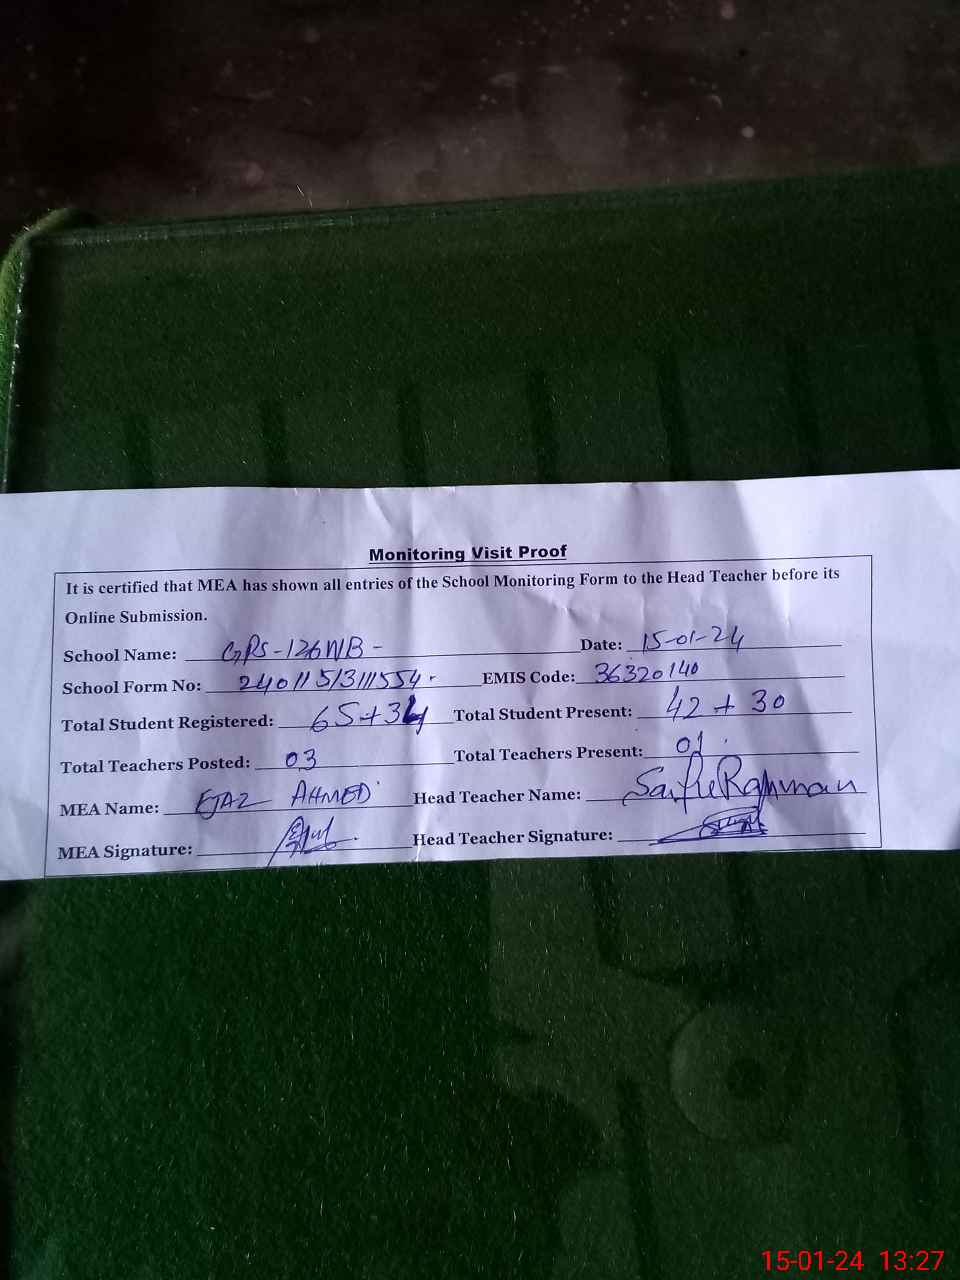 Monitoring Visit Proof
It is certified that MEA has shown all entries of the School Monitoring Form to the Head Teacher before its
Online Submission.
School Name: GPS-126WB- Date: 15-01-24
School Form No: EMIS Code: 36320140
Total Student Registered: 65+34 Total Student Present: 42 + 30
Total Teachers Posted: 03 Total Teachers Present: 01
MEA Name: EJAZ AHMED Head Teacher Name:
MEA Signature: Head Teacher Signature:
15-01-24 13:27